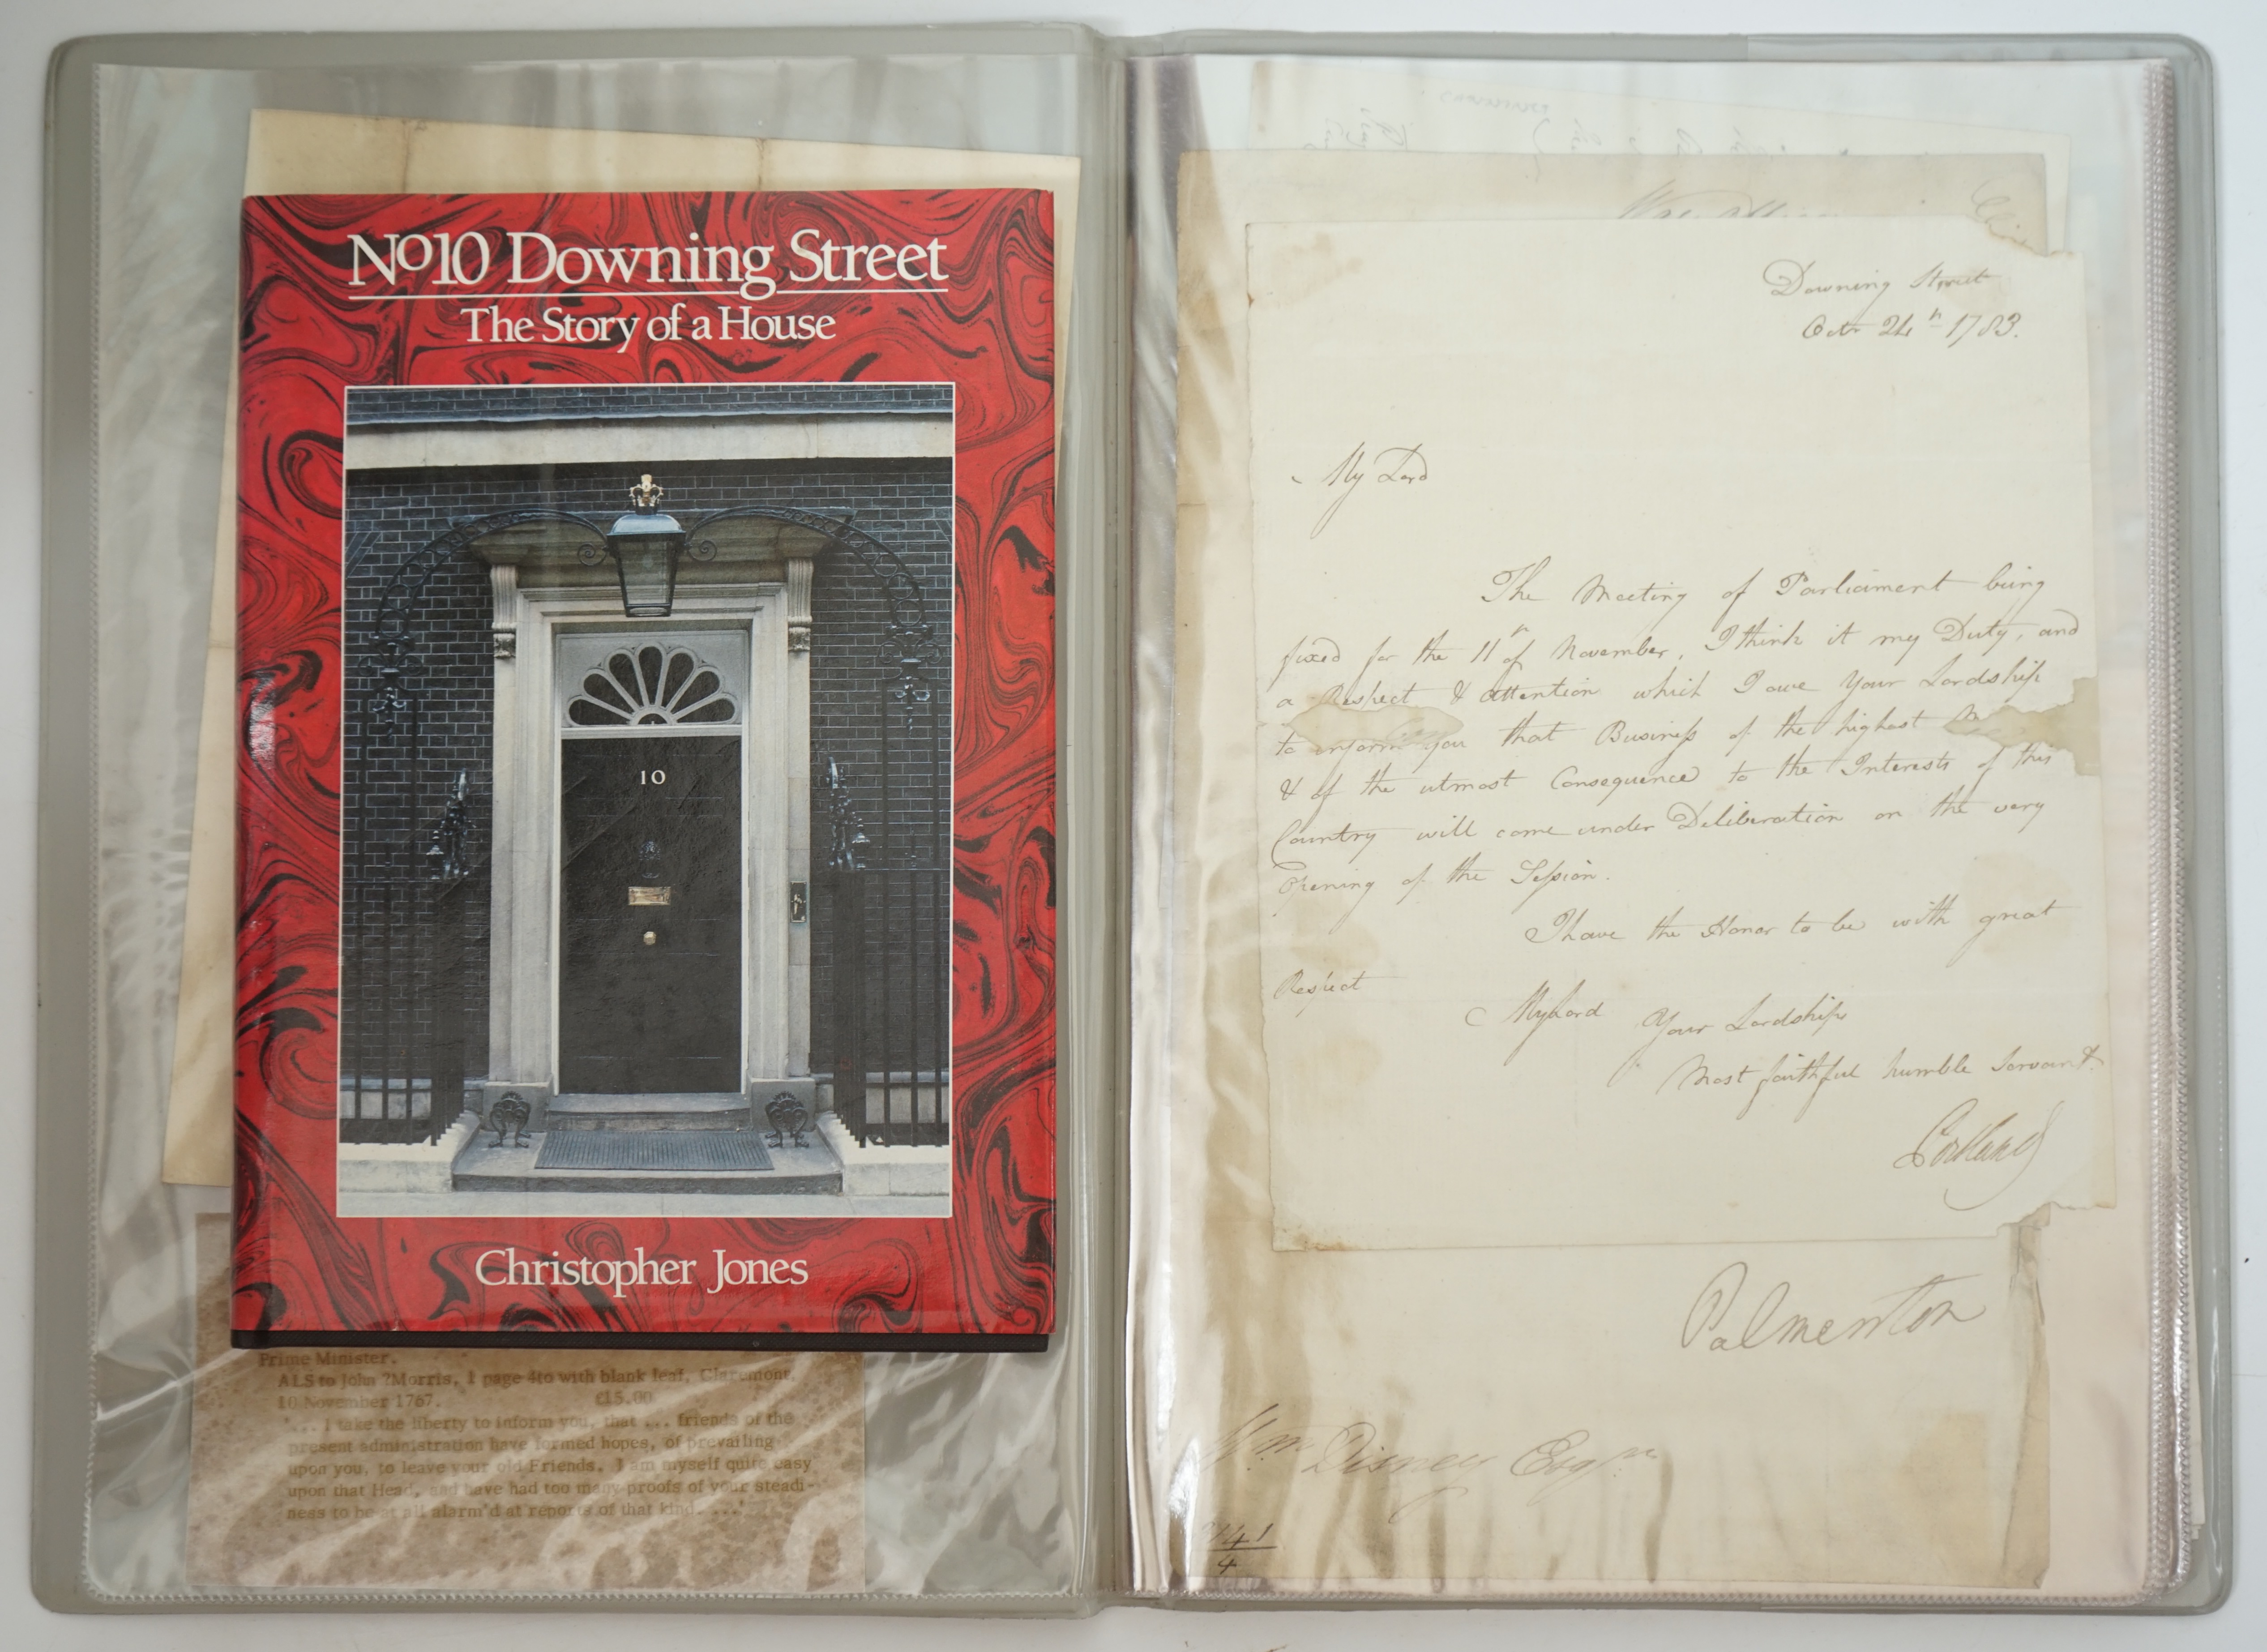 No10 Downing Street
The Story of a House
10
Christopher Jones
Prime Minister.
ALS to John ?Morris, 1 page 4to with blank leaf, Claremont,
10 November 1767. £15.00
'... I take the liberty to inform you, that ... friends of the
present administration have formed hopes, of prevailing
upon you, to leave your old Friends. I am myself quite easy
upon that Head, and have had too many proofs of your steadi-
ness to be at all alarm'd at reports of that kind. ...'
Downing Street
Octr 24th 1783.
My Lord
The Meeting of Parliament being
fixed for the 11th of November, I think it my Duty, and
a Respect & attention which I owe Your Lordship
to inform you that Business of the highest
& of the utmost Consequence to the Interests of this
Country will come under Deliberation on the very
Opening of the Session.
I have the Honor to be with great
Respect
My Lord Your Lordships
Most faithful humble Servant
Portland
Palmerston
Wm Disney Esqre